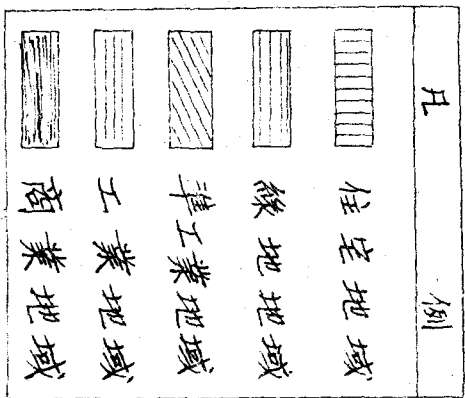 凡例
住宅地域
緑地地域
準工業地域
工業地域
商業地域